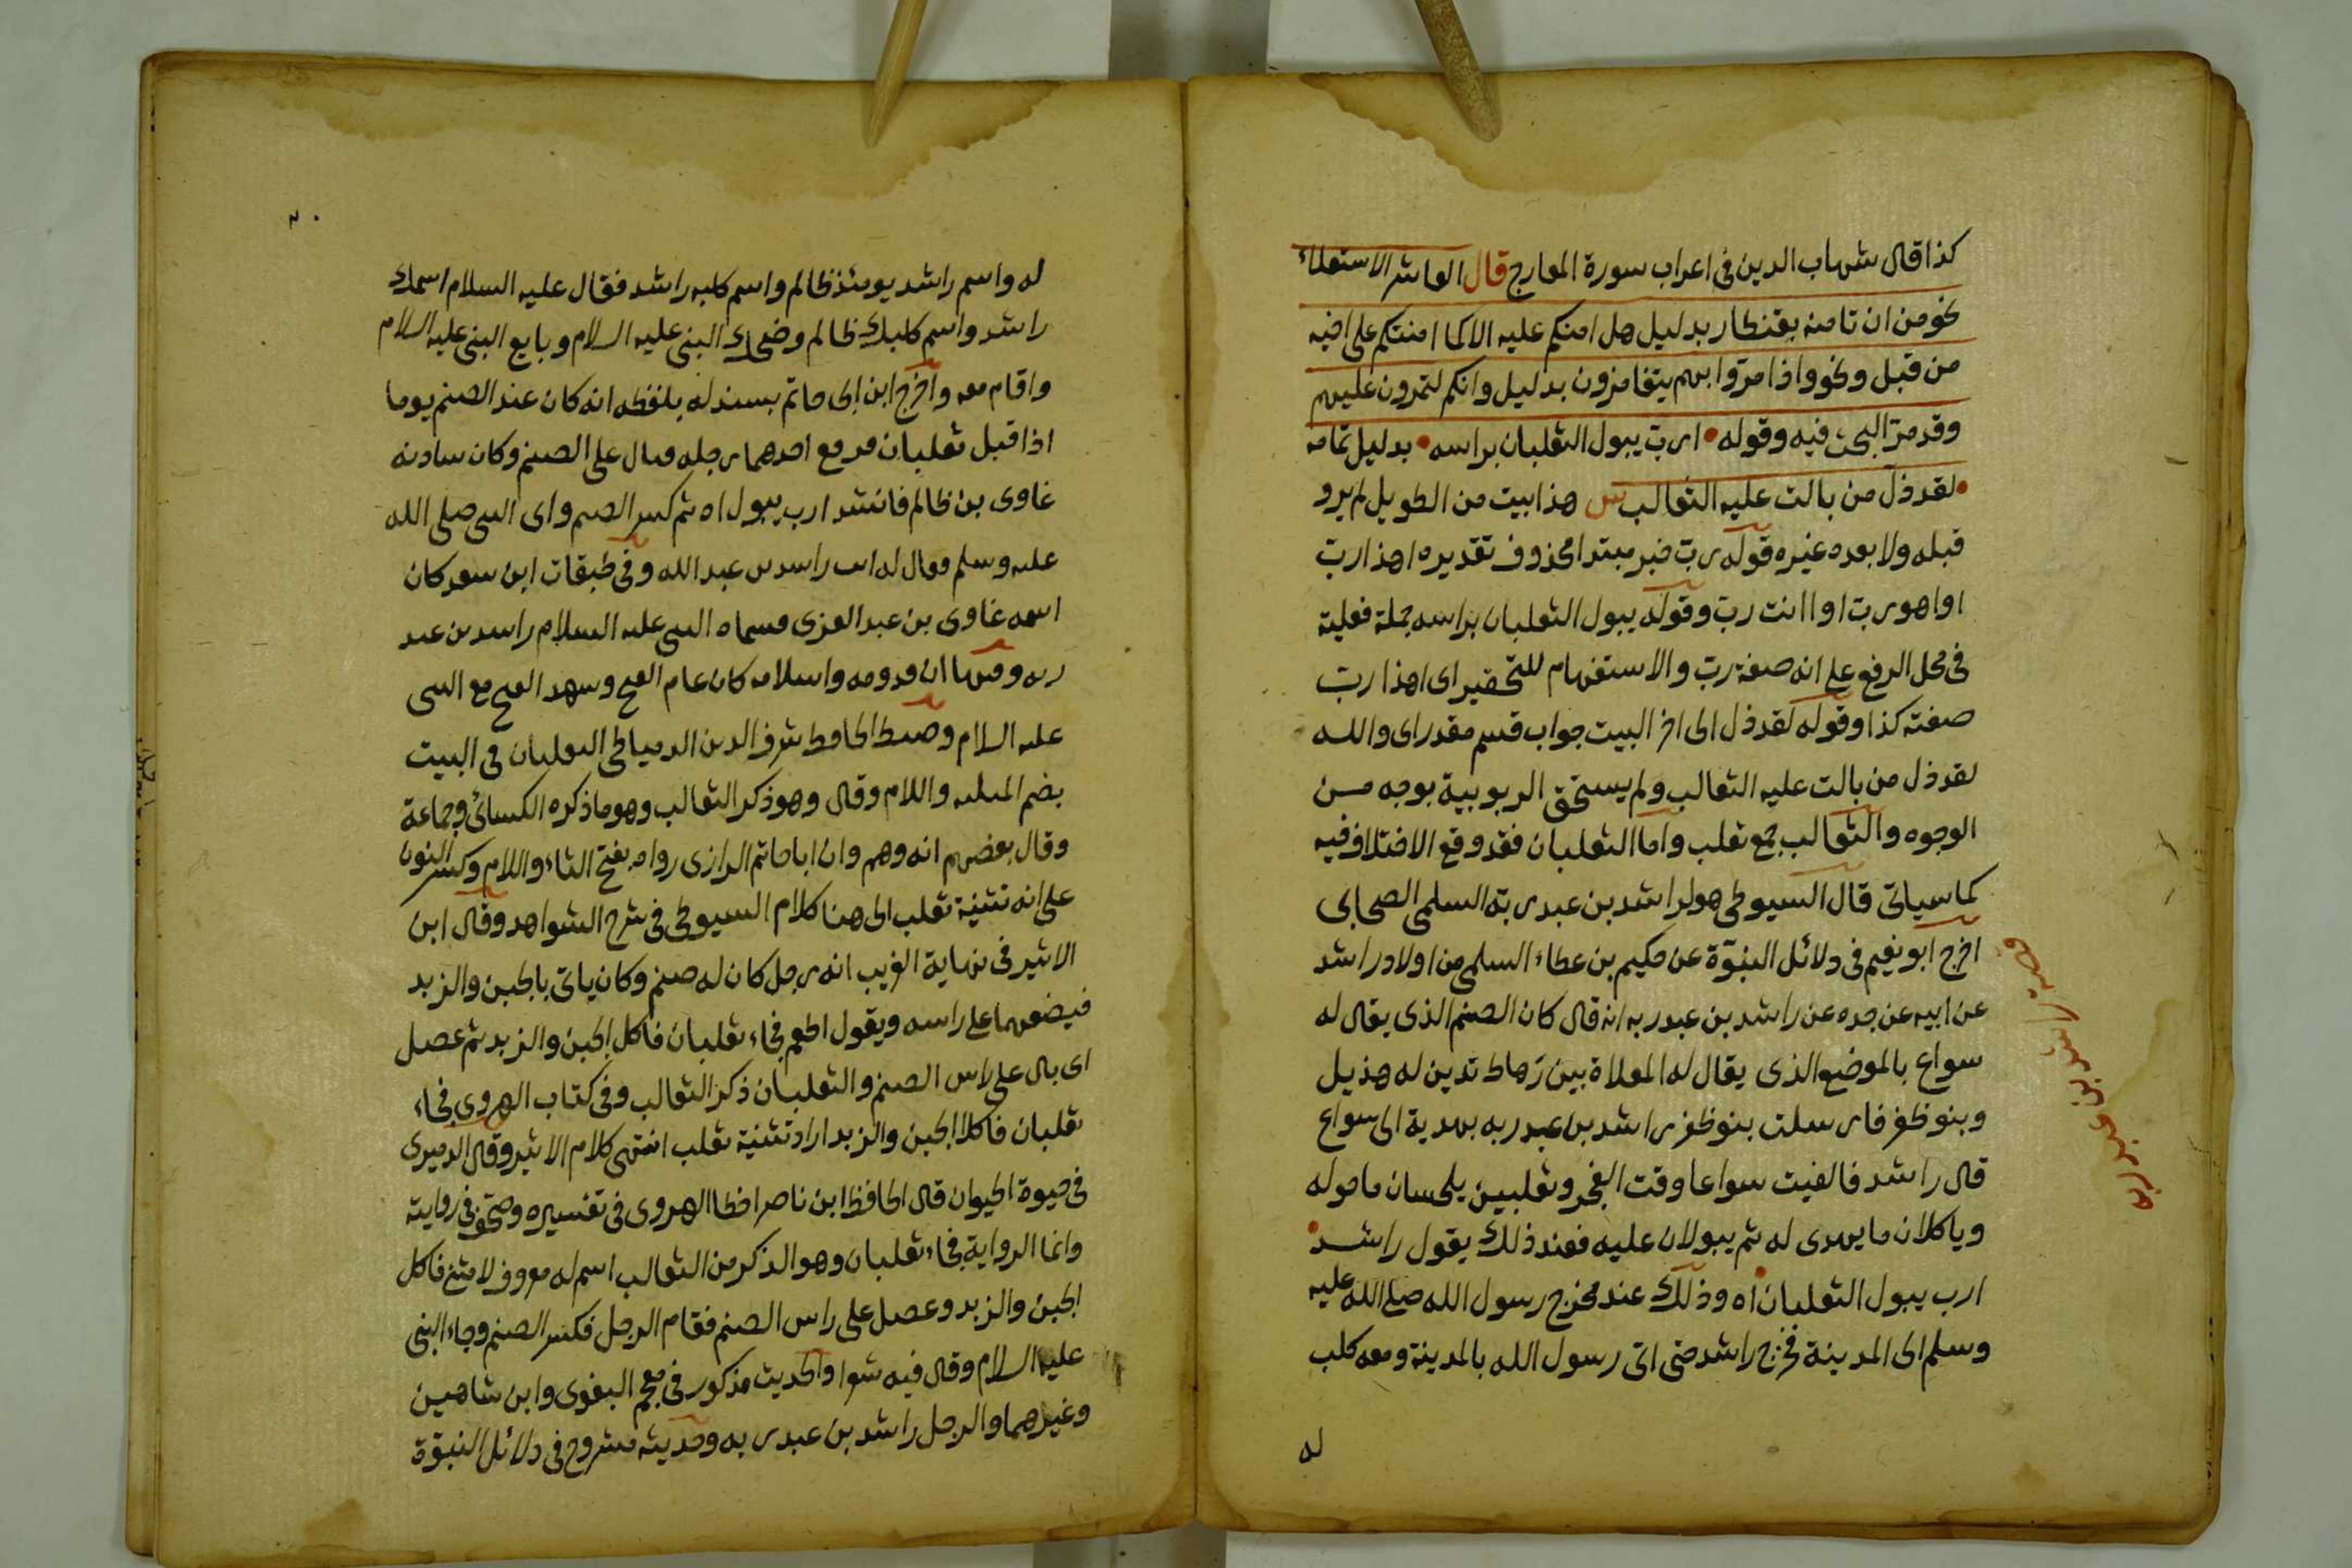 كذا قال شهاب الدين فى اعراب سورة المعارج قال العاشر الاستعلاء
نحو من ان تامنه بقنطار بدليل هل امنكم عليه الا كما امنتكم على اخيه
من قبل ونحو واذا مروا بهم يتغامزون بدليل وانكم لتمرون عليهم
وقد مرّ البحث فيه وقوله • ارب يبول الثعلبان براسه • بدليل تمامه
• لقد ذل من بالت عليه الثعالب س هذا بيت من الطويل لم يرو
قبله ولا بعده غيره قوله رب خبر مبتدا محذوف تقديره اهذا ربّ
او اهو رب او اانت ربّ وقوله يبول الثعلبان براسه جملة فعلية
فى محل الرفع على انه صفة ربّ والاستفهام للتحقير اى اهذا ربّ
صفته كذا وقوله لقد ذل الى اخر البيت جواب قسم مقدر اى والله
لقد ذل من بالت عليه الثعالب ولم يستحق الربوبية بوجه من
الوجوه والثعالب جمع ثعلب واما الثعلبان فقد وقع الاختلاف فيه
كما سياتى قال السيوطى هو لراشد بن عبد ربّه السلمى الصحابى
اخرج ابو نعيم فى دلائل النبوّة عن حكيم بن عطاء السلمى من اولاد راشد
عن ابيه عن جده عن راشد بن عبد ربه انه قال كان الصنم الذى يقال له
سواع بالموضع الذى يقال له المعلاة بين رهاط تدين له هذيل
وبنو ظفر فارسلت بنو ظفر راشد بن عبد ربه بهدية الى سواع
قال راشد فالفيت سواعا وقت الفجر وثعلبين يلحسان ما حوله
وياكلان ما يهدى له ثم يبولان عليه فعند ذلك يقول راشد •
ارب يبول الثعلبان • اه وذلك عند مخرج رسول الله صلى الله عليه
وسلم الى المدينة فخرج راشد حتى اتى رسول الله بالمدينة ومعه كلب
له
راشد بن عبد ربه
٢٠
له واسم راشد يومئذ ظالم واسم كلبه راشد فقال عليه السلام اسمك
راشد واسم كلبك ظالم وضحك النبى عليه السلام وبايع النبى عليه السلام
واقام معه واخرج ابن ابى حاتم بسند له بلفظه انه كان عند الصنم يوما
اذا قبل ثعلبان فرفع احدهما رجله فبال على الصنم وكان سادنه
غاوى بن ظالم فانشد ارب يبول اه ثم كسر الصنم واى النبى صلى الله
عليه وسلم فقال له انت راشد بن عبد الله وفى طبقات ابن سعد كان
اسمه غاوى بن عبد العزى فسماه النبى عليه السلام راشد بن عبد
ربه وفيها ان قدومه واسلامه كان عام الفتح وشهد الفتح مع النبى
عليه السلام وضبط الحافظ شرف الدين الدمياطى الثعلبان فى البيت
بضم المثلثه واللام وقال وهو ذكر الثعالب وهو ما ذكره الكسائى وجماعة
وقال بعضهم انه وهم وان ابا حاتم الرازى رواه بفتح الثاء واللام وكسر النون
على انه تثنية ثعلب الى هنا كلام السيوطى فى شرح الشواهد وقال ابن
الاثير فى نهاية الغريب انه رجل كان له صنم وكان ياتى بالجبن والزبد
فيضعهما على راسه ويقول اطعم فجاء ثعلبان فاكل الجبن والزبد ثم عصل
اى بال على راس الصنم والثعلبان ذكر الثعالب وفى كتاب الهروى فجاء
ثعلبان فاكلا الجبن والزبد اراد تثنية ثعلب انتهى كلام الاثير وقال الدميرى
فى حيوة الحيوان قال الحافظ ابن ناصر اخطا الهروى فى تفسيره وصحف فى روايته
وانما الرواية فجاء ثعلبان وهو الذكر من الثعالب اسم له معروف لا مثنى فاكل
الجبن والزبد وعصل على راس الصنم فقام الرجل فكسر الصنم وجاء النبى
عليه السلام وقال فيه شعرا والحديث مذكور فى معجم البغوى وابن شاهين
وغيرهما والرجل راشد بن عبد ربه وحديثه مشروح فى دلائل النبوّة